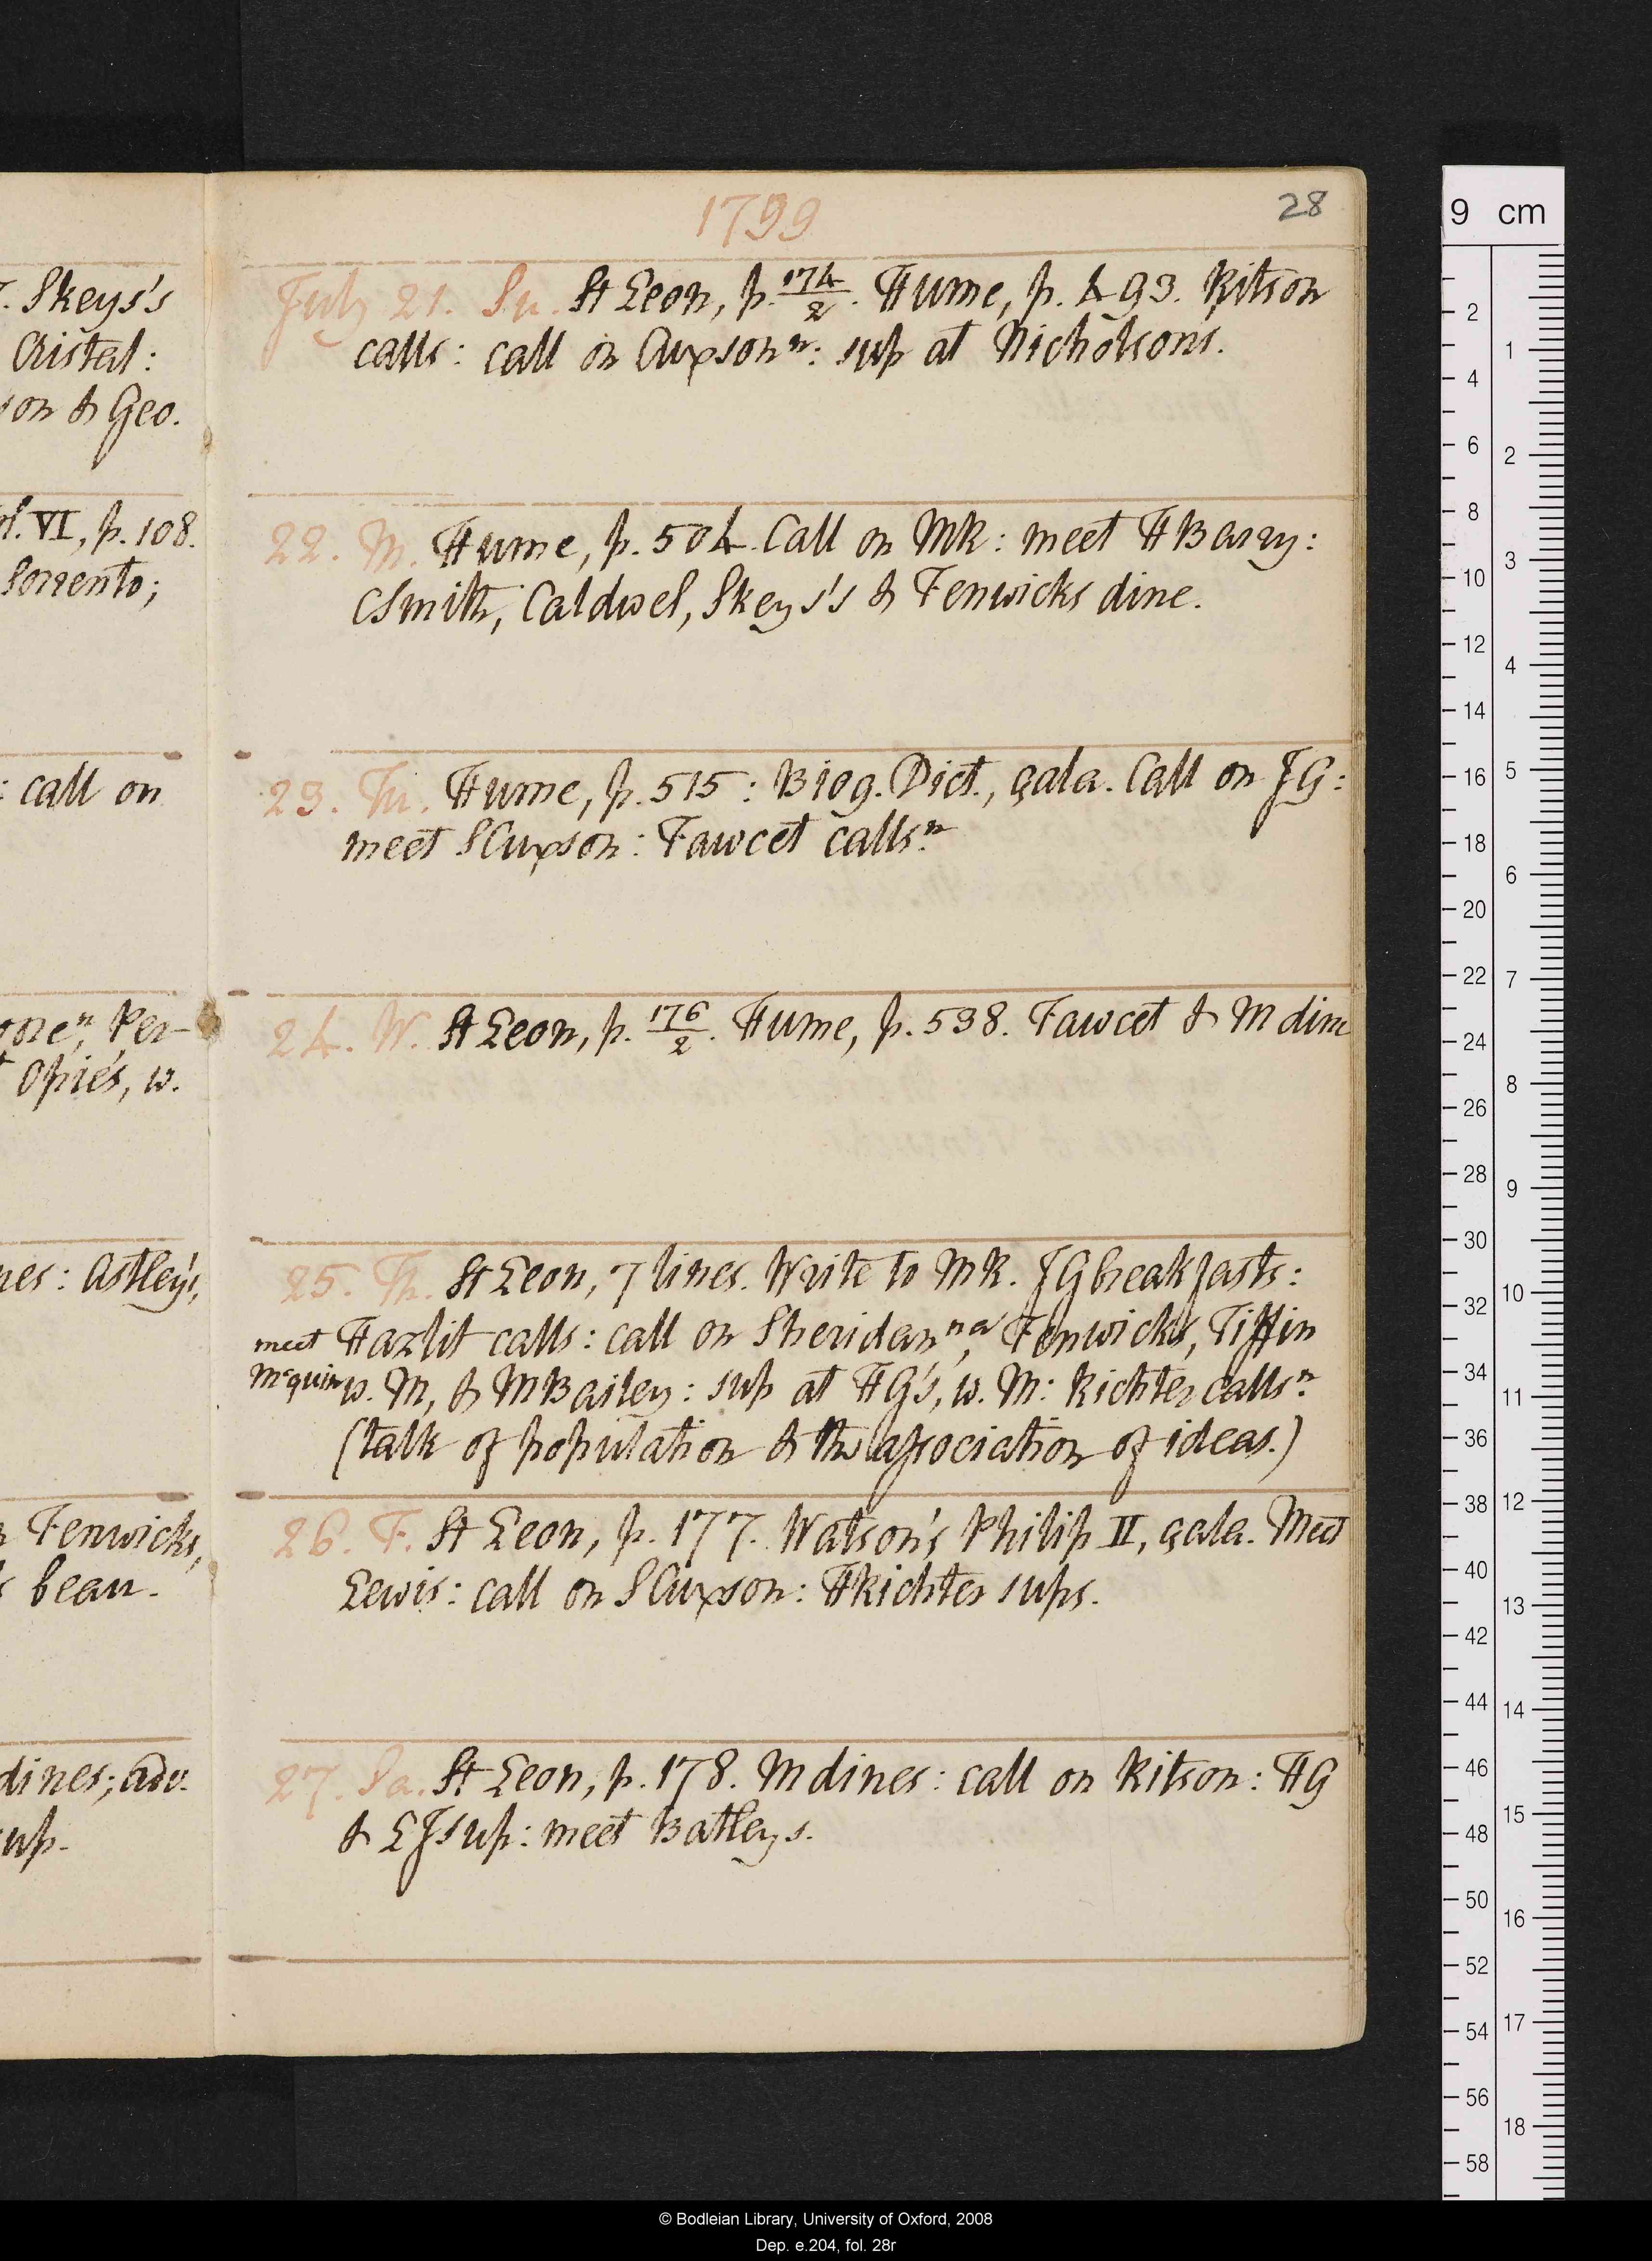 1799
28
July 21. Su. St Leon, p. 174/2. Hume, p. 493. Ritson
calls: call on Cuxson n: sup at Nicholsons.
22. M. Hume, p. 504. Call on MR: meet HBarry:
CSmith, Caldwel, Skeys's & Fenwicks dine.
23. Tu. Hume, p. 515: Biog. Dict., çala. Call on JG:
meet SCuxson: Fawcet calls n.
24. W. St Leon, p. 176/2. Hume, p. 538. Fawcet & M dine
25. Th. St Leon, 7 lines. Write to MR. JG breakfasts:
meet Hazlit calls: call on Sheridan n a, Fenwicks, Tiffin
Mcquin w. M, & MBailey: sup at HG's, w. M: Richter calls n.
(talk of population & the association of ideas.)
26. F. St Leon, p. 177. Watson's Philip II, çala. Meet
Lewis: call on SCuxson: HRichter sups.
27. Sa. St Leon, p. 178. M dines: call on Ritson: HG
& LJ sup: meet Batleys.
. Skeys's
Cristal:
on & Geo.
VI, p. 108.
Sorrento;
: call on
Per-
Opie's, w.
nes: Astley's,
Fenwicks,
beau.
dines; adv.
sup.
9 cm
2 4 6 8 10 12 14 16 18 20 22 24 26 28 30 32 34 36 38 40 42 44 46 48 50 52 54 56 58
1 2 3 4 5 6 7 8 9 10 11 12 13 14 15 16 17 18
© Bodleian Library, University of Oxford, 2008
Dep. e.204, fol. 28r